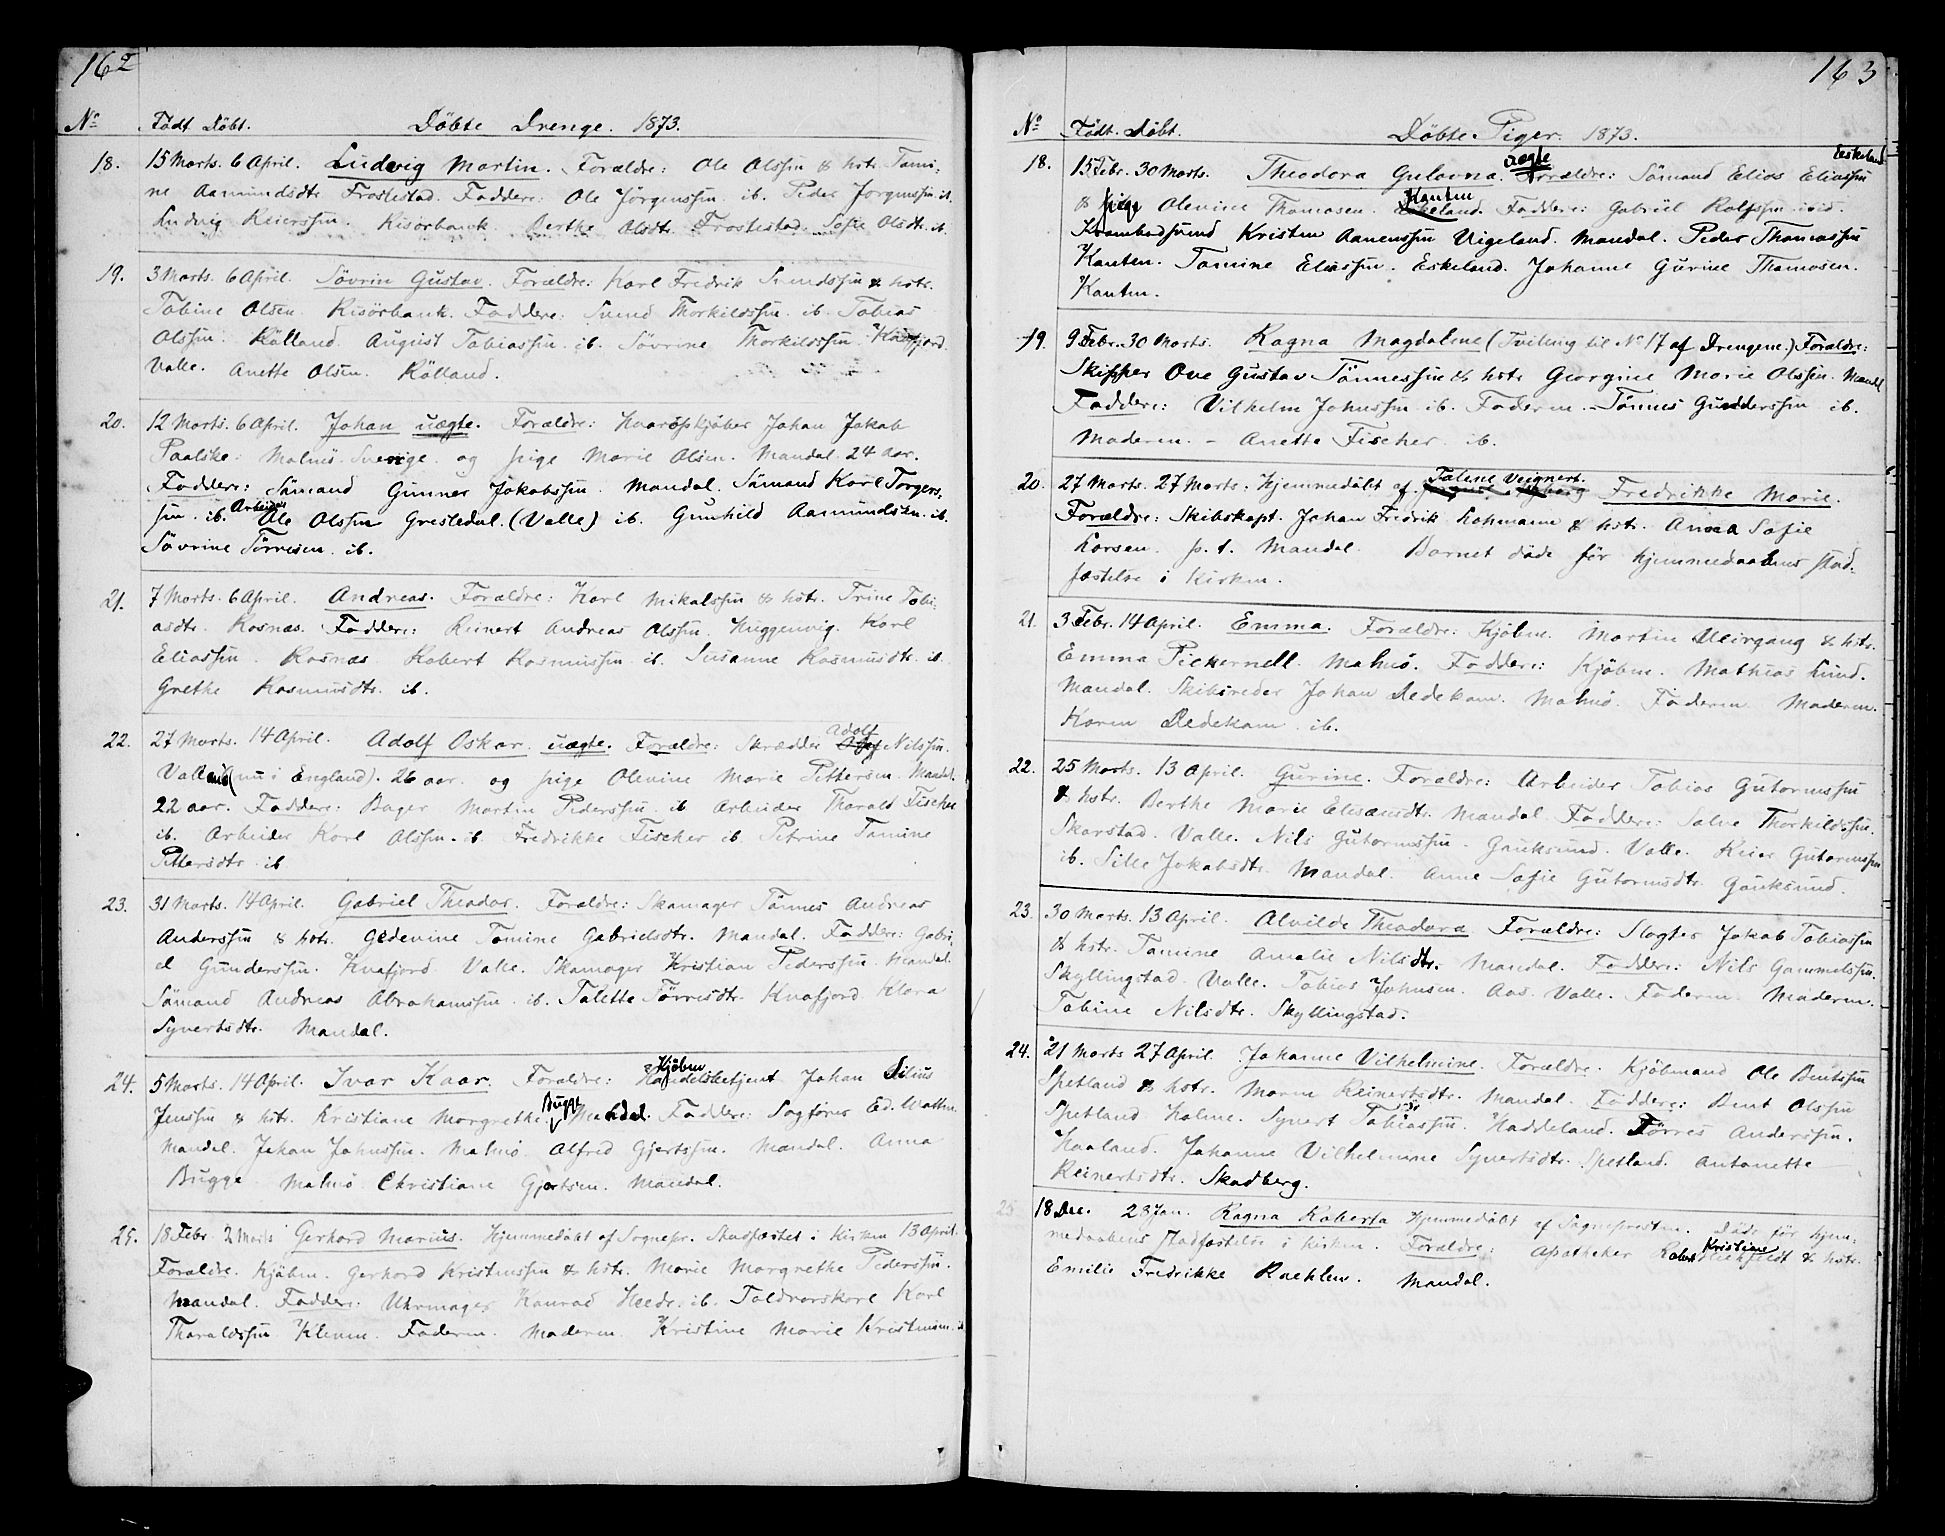 162
No Födt. Döbt. Döbte Drenge. 1873.
18. 15 Marts. 6 April. Ludvig Martin. Forældre: Ole Olssön & hstr. Tami-
ne Aamundsdtr. Frostestad. Faddere: Ole Jörgenssön ib. Peder Jörgenssön ib.
Ludvig Reierssön. Risörbanck. Berthe Olsdt. Frostestad. Sofie Olsdtr. ib.
19. 3 Marts. 6 April. Sövrin Gustav. Forældre: Karl Fredrik Svendssön & hstr.
Tobine Olsen. Risörbank. Faddere: Svend Thorkildssön. ib. Tobias
Olssön. Rölland. August Tobiassön. ib. Sövrine Thorkildssön. Knafjord
Valle. Anette Olsen. Rölland.
20. 12 Marts. 6 April. Johan uægte. Forældre: Johan Jakob
Paalske. Malmö. Sverige. og pige Marie Olsen. Mandal. 24 aar.
Faddere: Sömand Gunner Jakobssön. Mandal. Sömand Karl Torgers-
sön. ib. Arbeider Ole Olssön Gresledal. (Valle) ib. Gunhild Aamundsen. ib.
Sövrine Törresen. ib.
21. 7 Marts. 6 April. Andreas. Forældre: Karl Mikalssön & hstr. Trine Tobi-
asdtr. Rosnæs. Faddere: Reinert Andreas Olssön. Huggenvig. Karl
Eliassön. Rosnæs Robert Rasmussön. ib. Susanne Rasmusdtr. ib.
Grethe Rasmusdtr. ib.
22. 27 Marts. 14 April. Adolf Oskar. uægte. Forældre: Skrædder Adolf Nilssön.
(nu i England). 26 aar. og pige Olevine Marie Pettersen. Mandal.
22 aar. Faddere: Bager Martin Pederssön. ib Arbeider Tharald Fischer
ib. Arbeider Karl Olssön. ib Fredrikke Fischer ib Petrine Tamine
Pettersdtr. ib
23. 31 Marts. 14 April. Gabriel Theodor. Forældre: Skomager Tönnes Andreas
Anderssön & hstr. Gedevine Tomine Gabrielsdtr. Mandal. Faddere: Gabri-
el Gunderssön. Knafjord. Valle. Skomager Kristian Pederssön. Mandal.
Sömand Andreas Abrahamssön. ib. Talette Törresdtr. Knafjord Klara
Syvertsdtr. Mandal.
24. 5 Marts. 14 April. Ivar Kaar. Forældre: Kjöbm Handelsbetjent Johan Silius
Jenssön & hstr. Kristiane Margrethe Bugge Mandal. Faddere: Sagförer Ed. Wattne.
Mandal. Johan Johnssön. Malmö. Alfred Gjertssön. Mandal. Anna
Bugge Malmö Christiane Gjertsen. Mandal.
25. 18 Febr. 2 Marts Gerhard Marius. Hjemmedöbt af Sognepr. Stadfæstet i Kirken 13 April.
Forældre. Kjöbm. Gerhard Kristenssön & hstr. Marie Margrethe Pederssön.
Mandal. Faddere: Uhrmager Konrad Heede. ib. Toldrorskarl Karl
Tharaldssön Kleven. Faderen. Moderen. Kristine Marie Kristensen. ib
163
No Födt. Döbt. Döbte Piger. 1873.
18. 15 Febr. 30 Marts. Theodora Gulovna. uægte Forældre: Sömand Elias Eliassön Eskeland
& pige Olevine Thomasen. Kanten Eskeland. Faddere: Gabriel Rolfssön.
Krambodsund Kristen Aanenssön Vigeland. Mandal. Peder Thomassön
Kanten. Tomine Eliassön. Eskeland. Johanne Gurine Thomasen.
Kanten.
19. 9 Febr. 30 Marts. Ragna Magdalene (Tvilling til No 17 af Drengene.) Forældre:
Skipper Ove Gustav Tönnessön & hstr. Georgine Marie Olssön. Mandal
Faddere: Vilhelm Johnssön ib. Faderen. Tönnes Gunderssön ib.
Moderen. - Anette Fischer ib.
20. 27 Marts. 27 Marts. Hjemmedöbt af Taline Veignert. Fredrikke Marie.
Forældre: Skibskapt. Johan Fredrik Lohmann & hstr. Anna Sofie
Larsen. p. t. Mandal. Barnet döde för hjemmedaabens stad-
fæstelse i Kirken.
21. 3 Febr. 14 April. Emma. Forældre: Kjöbm. Martin Meirgang & hstr.
Emma Pickernell. Malmö. Faddere: Kjöbm. Mathias Lund.
Mandal. Skibsreder Johan Dedekam. Malmö. Faderen. Moderen.
Karen Dedekam ib.
22. 25 Marts. 13 April. Gurine. Forældre: Arbeider Tobias Gutormssön
& hstr. Berthe Marie Elisæusdtr. Mandal. Faddere: Salve Thorkildssön.
Skarstad. Valle. Nils Gutormssön. Gauksund. Valle. Reier Gutormssön
ib. Sille Jakobsdtr. Mandal. Anne Sofie Gutormsdtr. Gauksund.
23. 30 Marts. 13 April. Alvilde Theodora. Forældre: Slagter Jakob Tobiassön
& hstr. Tamine Amalie Nilsdtr. Mandal. Faddere: Nils Gammelssön.
Skyllingstad. Valle. Tobias Johnsen. Aas. Valle. Faderen. Moderen.
Tobine Nilsdtr. Skyllingstad.
24. 21 Marts 27 April. Johanne Vilhelmine. Forældre. Kjöbmand Ole Bentssön
Spetland & hstr. Maren Reinertsdtr. Mandal. Faddere: Bent Olssön
Spetland Holme. Syvert Tobiassön. Haddeland. Törres Anderssön.
Haaland. Johanne Vilhelmine Syvertsdtr. Spetland. Antonette
Reinertsdtr. Skadberg.
25 18 Dec. 28 Jan. Ragna Roberta Hjemmedöbt af Sognepresten. Döde för hjem-
medaabens stadfæstelse i Kirken. Forældre: Apotheker Robert Kristian & hstr.
Emilie Fredrikke Raehler. Mandal.